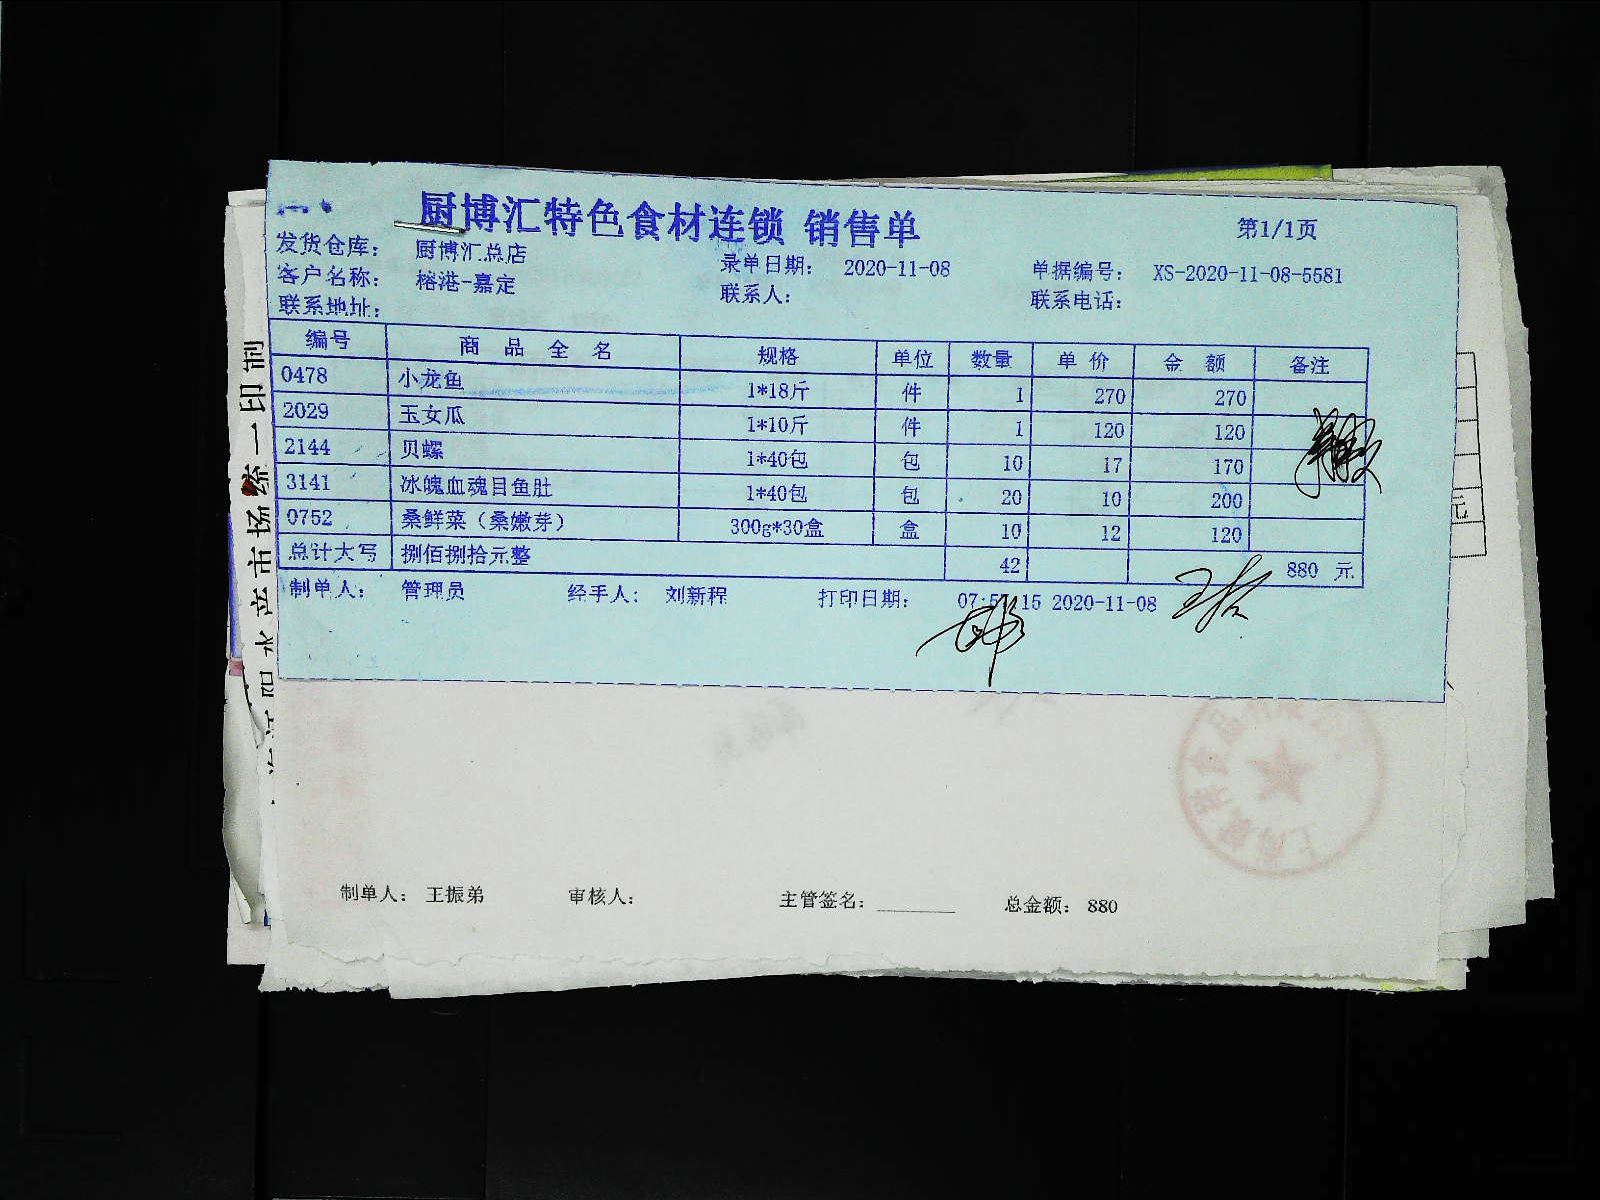 厨博汇特色食材连锁 销售单
第1/1页
发货仓库： 厨博汇总店 录单日期： 2020-11-08 单据编号： XS-2020-11-08-5581
客户名称： 榕港-嘉定 联系人： 联系电话：
联系地址：
编号 商 品 全 名 规格 单位 数量 单 价 金 额 备注
0478 小龙鱼 1*18斤 件 1 270 270
2029 玉女瓜 1*10斤 件 1 120 120
2144 贝螺 1*40包 包 10 17 170
3141 冰魄血魂目鱼肚 1*40包 包 20 10 200
0752 桑鲜菜（桑嫩芽） 300g*30盒 盒 10 12 120
总计大写 捌佰捌拾元整 42 880 元
制单人： 管理员 经手人： 刘新程 打印日期： 07:57:15 2020-11-08
制单人： 王振弟 审核人： 主管签名： 总金额： 880
水产市场统一印制
元